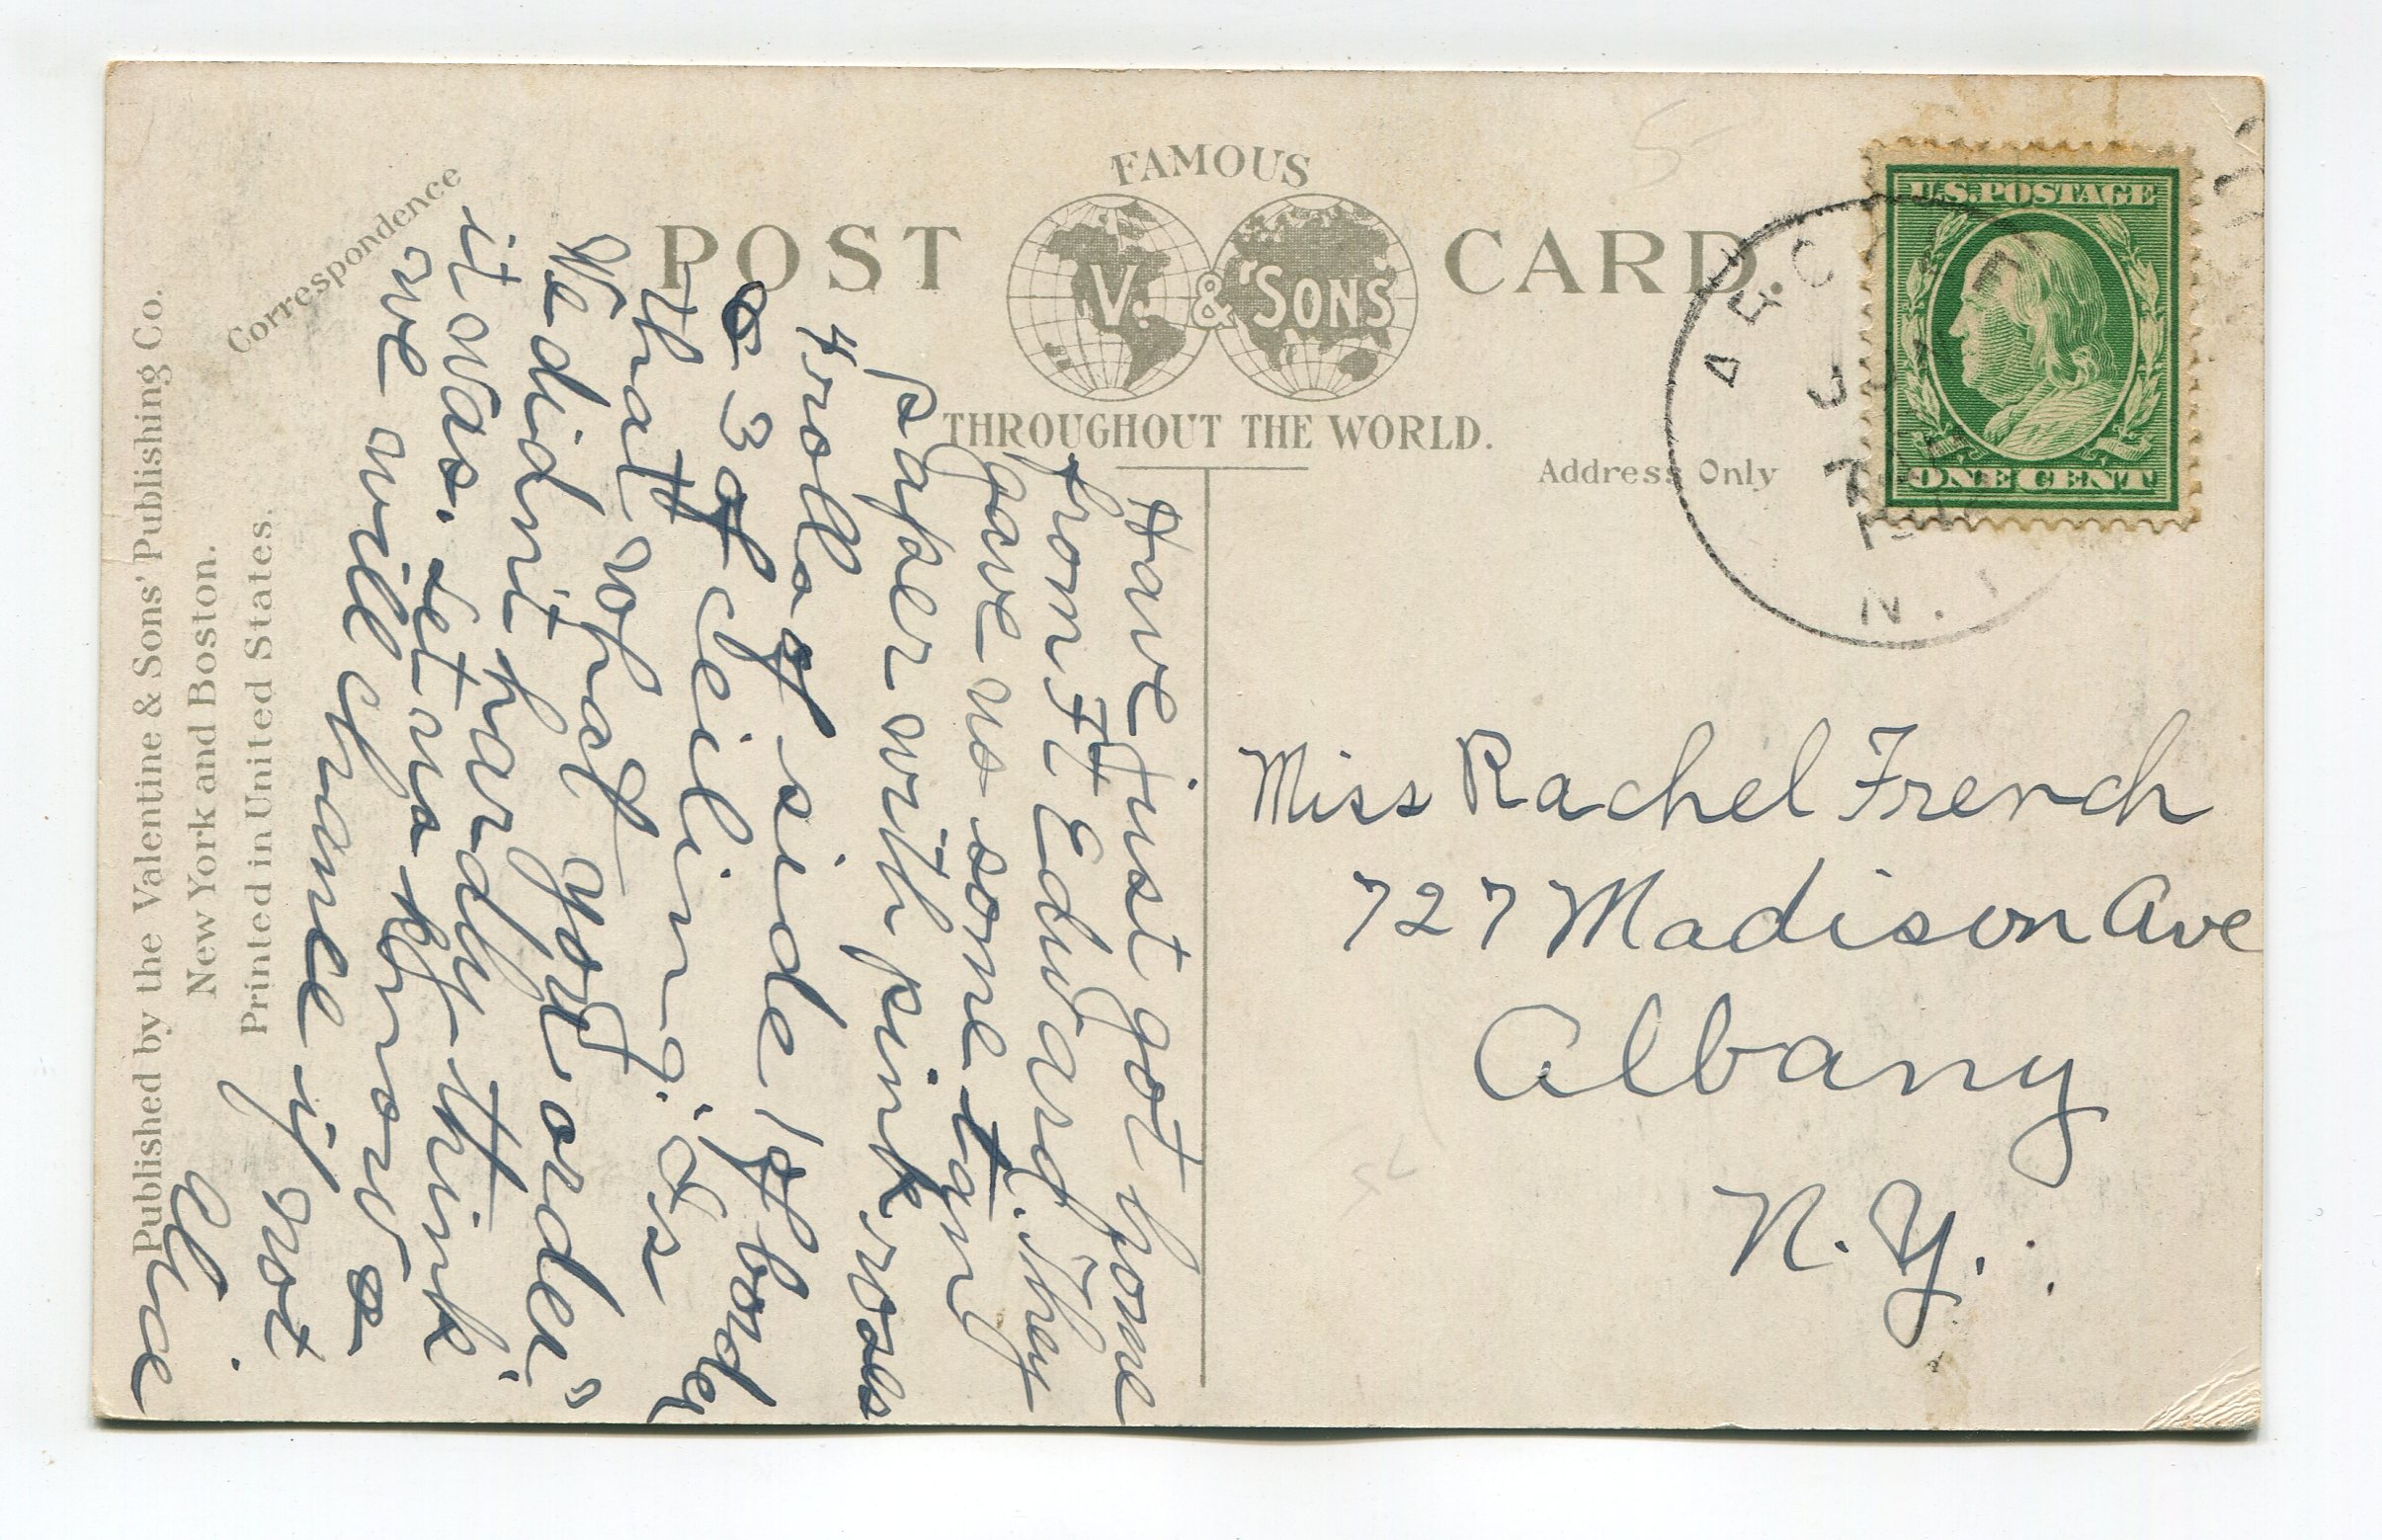 FAMOUS
POST CARD
V. & SONS
THROUGHOUT THE WORLD.
Correspondence
Address Only
Published by the Valentine & Sons' Publishing Co.
New York and Boston.
Printed in United States.
U.S. POSTAGE
ONE CENT
7
N.
Have just got home
from Ft Edward. They
gave us some tan
paper with pink roses
4 rolls of side 1 of border
& 3 of ceiling. Is
that what you order
We didn't hardly think
it was. Let us know &
we will change if not
Alice
Miss Rachel French
727 Madison Ave
Albany
N.Y.